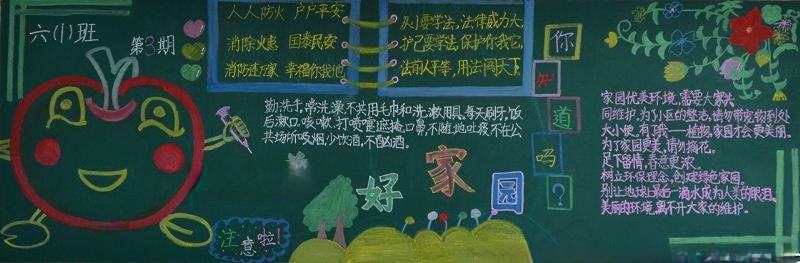 六(1)班
第3期
人人防火 户户平安
消除火患 国泰民安
消防进万家 幸福你我他
从小要学法,法律威力大,
护己要学法,保护你我它,
法前人平等,用法闯天下
你
知
道
吗
?
勤洗手,常洗澡,不共用毛巾和洗漱用具,每天刷牙,饭
后漱口,咳嗽、打喷嚏遮掩口鼻,不随地吐痰,不在公
共场所吸烟,少饮酒,不酗酒。
好家园
注意啦!
家园优美环境,需要大家共
同维护,为了小区的整洁,请勿带宠物到处
大小便,有了我——植物,家园才会更美丽。
为了家园更美,请勿摘花。
足下留情,春意更浓。
树立环保理念,创建绿色家园。
别让地球上最后一滴水成为人类的眼泪。
美丽的环境,离不开大家的维护。